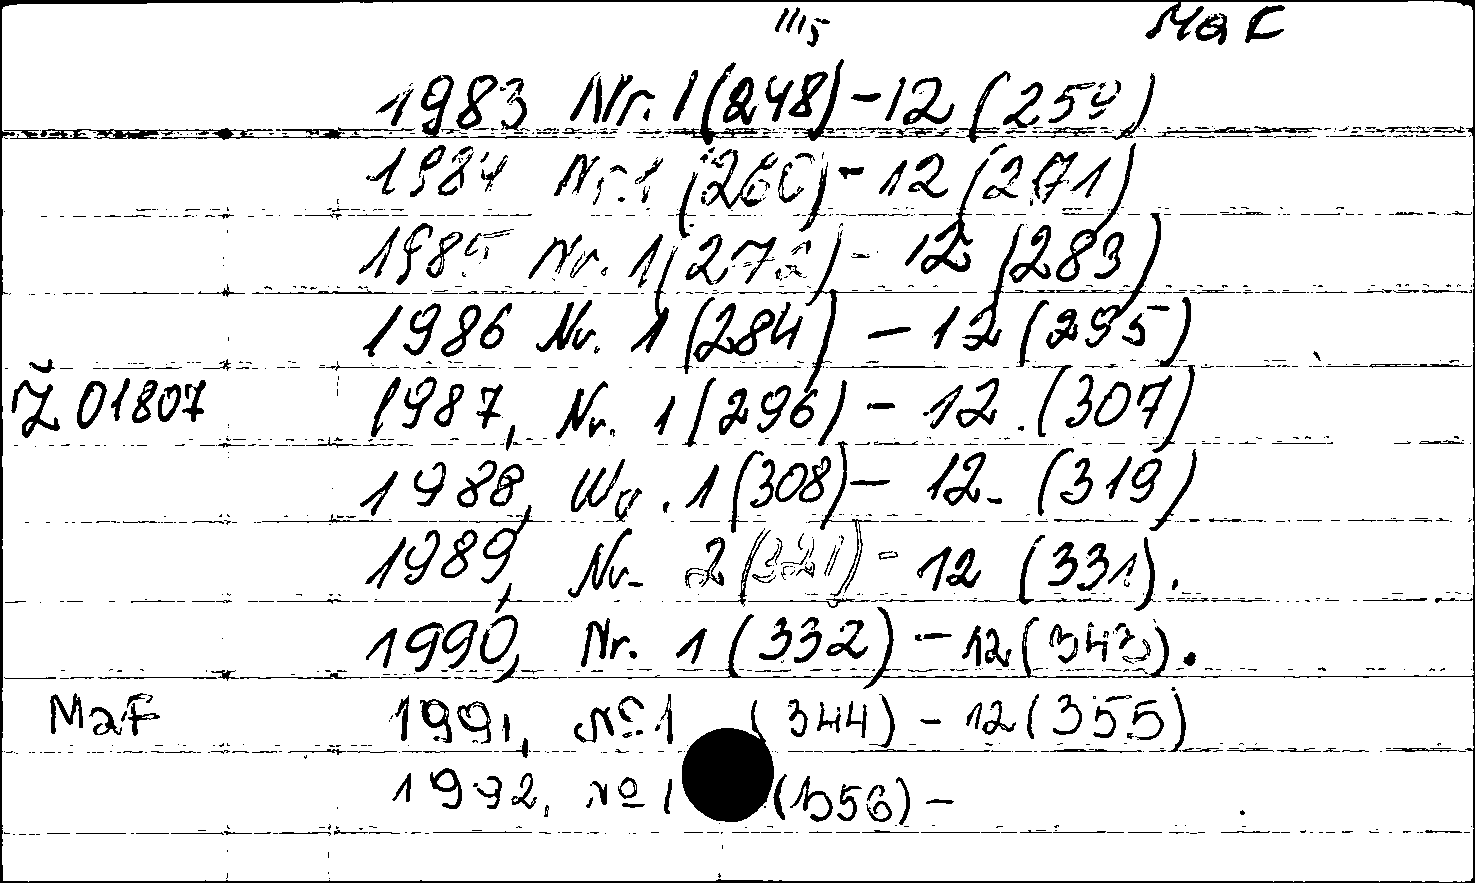 MaF
1983 Nr. 1 (248) - 12 (259)
1984 Nr. 1 (260) - 12 (271)
1985 Nr. 1 (272) - 12 (283)
1986 Nr. 1 (284) - 12 (295)
Ž 01807 1987, Nr. 1 (296) - 12. (307)
1988, Nr. 1 (308) - 12. (319)
1989, Nr. 2 (321) - 12 (331).
1990, Nr. 1 (332) - 12 (343).
MaF 1991, № 1 (344) - 12 (355)
1992, № 1 (356) -